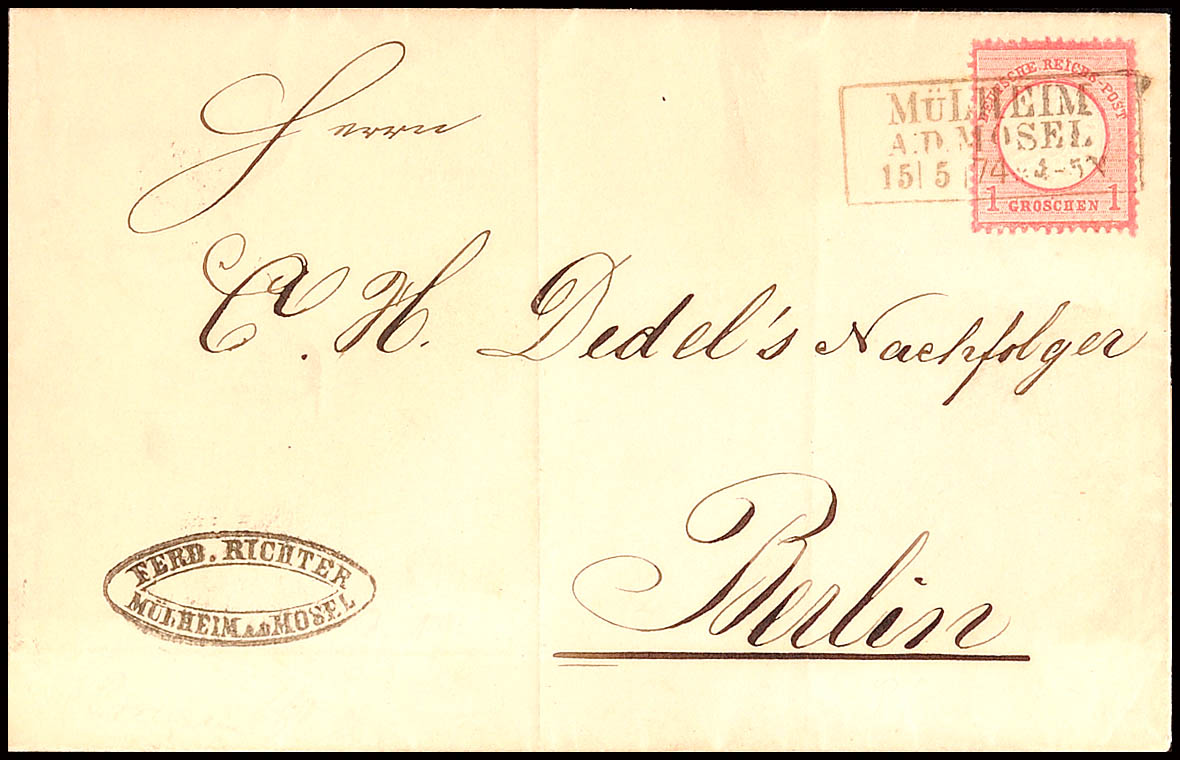 DEUTSCHE REICHS-POST
1 GROSCHEN 1
MÜLHEIM
A.D. MOSEL
15 5 74 4-5
Herrn
C. A. H. Dedel's Nachfolger
Berlin
FERD. RICHTER
MÜLHEIM A.D MOSEL